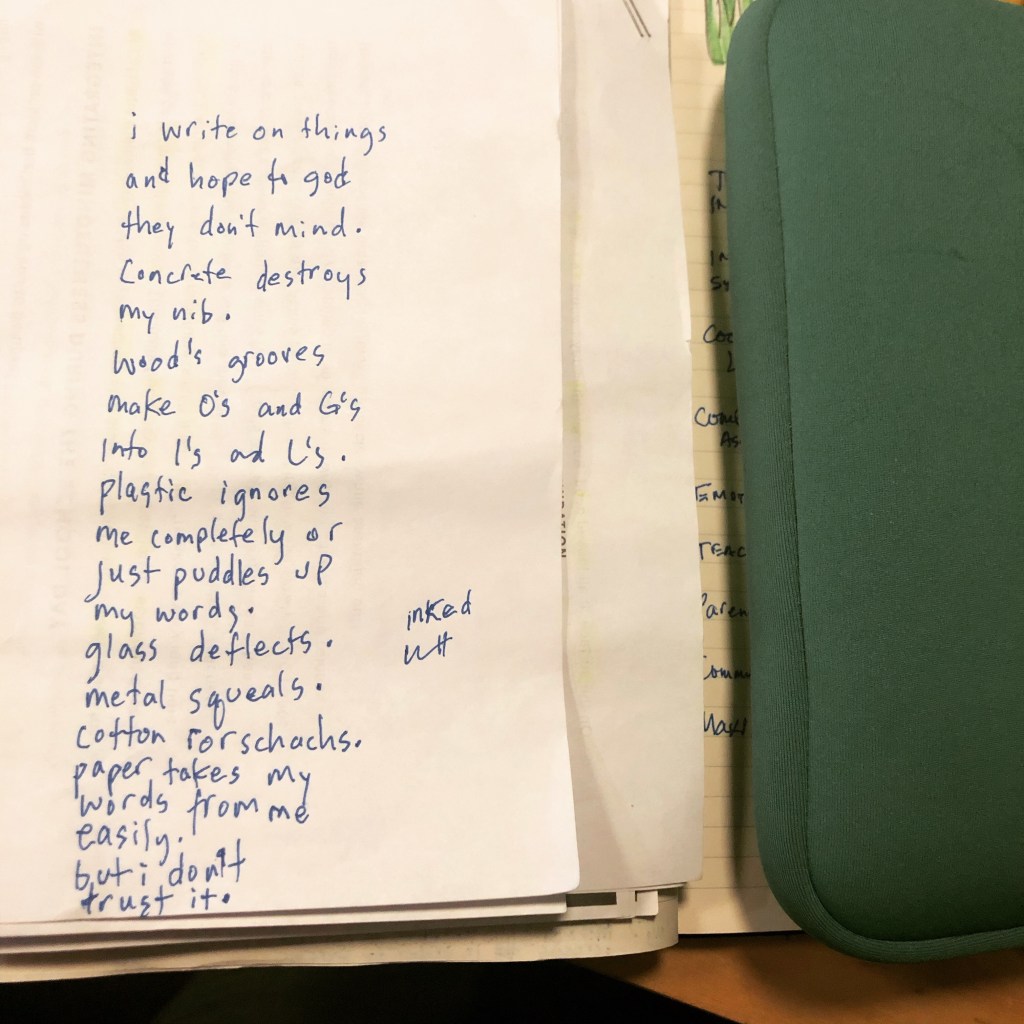 i write on things
and hope to god
they don't mind.
Concrete destroys
my nib.
wood's grooves
make O's and G's
Into I's ad L's.
plastic ignores
me completely or
just puddles up
my words.
glass deflects.
metal squeals.
cotton rorschachs.
paper takes my
words from me
easily.
but i don't
trust it.
inked